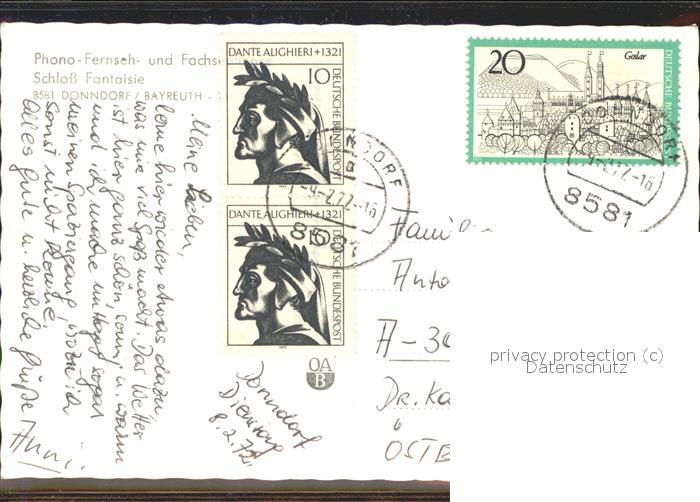 Phono-Fernseh- und Fachs
Schloß Fantaisie
8581 DONNDORF / BAYREUTH -
DANTE ALIGHIERI +1321
10
DEUTSCHE BUNDESPOST
DANTE ALIGHIERI +1321
10
DEUTSCHE BUNDESPOST
20
Goslar
DEUTSCHE BUNDESPOST
NDORF
-9-2.72-16
8581
-9-2.72-16
8581
Meine Lieben,
lerne hier wieder etwas dazu,
was mir viel Spaß macht. Das Wetter
ist hier ganz schön, sonnig u. warm
und ich mache mittags sogar
meinen Spaziergang, wozu ich
sonst nicht komme.
Alles gute u. herzliche Grüße
Anni
OA
B
Donndorf
Dienstag
8.2.72
Famili
Anto
A-30
Dr. Ka
ÖSTE
privacy protection (c)
Datenschutz